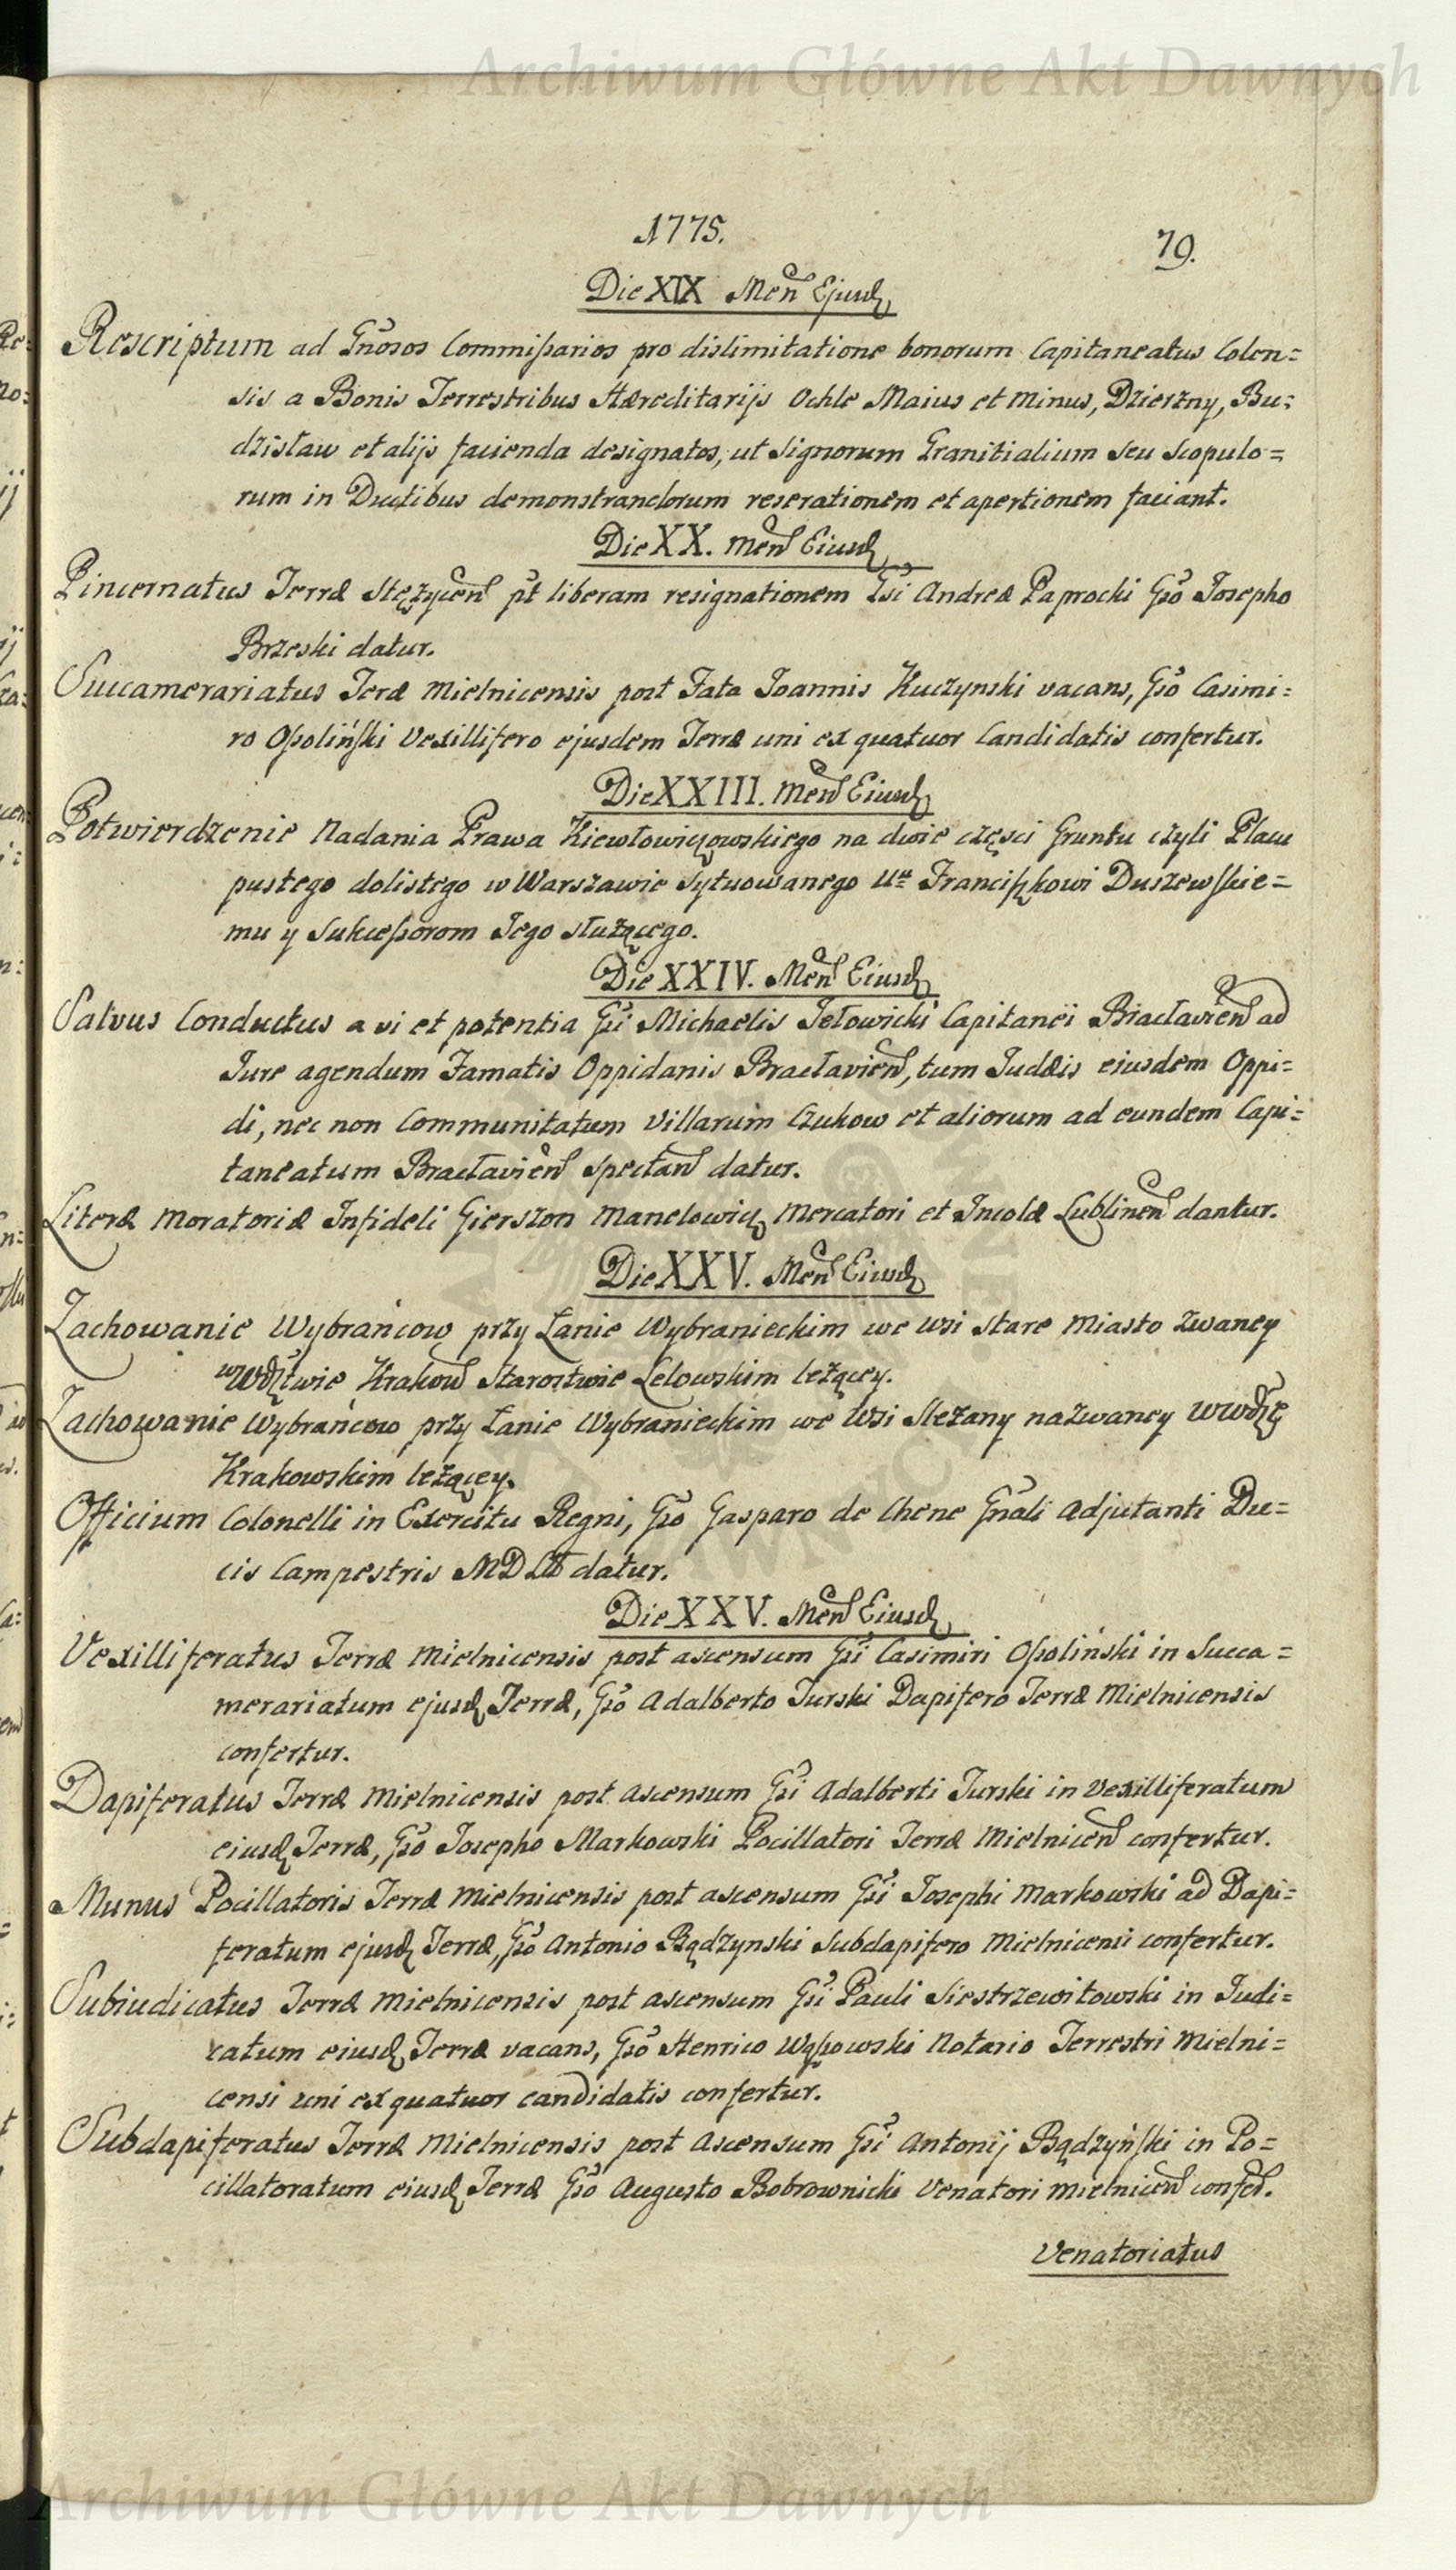 Archiwum Główne Akt Dawnych
1775.
79.
Die XIX Men Ejusd
Rescriptum ad Gnosos Commissarios pro dislimitatione bonorum Capitaneatus Colen=
sis a Bonis Terrestribus Hæreditarijs Ochle Maius et minus, Dzierzny, Bu=
dzisław et alijs facienda designatos, ut Signorum Granitialium seu Scopulo=
rum in Ductibus demonstrandorum reserationem et apertionem faciant.
Die XX. Men Eiusd
Pincernatus Terræ Stężycen pt liberam resignationem Gsi Andreæ Paprocki Gso Josepho
Brzeski datur.
Succamerariatus Teræ Mielnicensis post Fata Joannis Kuczynski vacans, Gso Casimi=
ro Ossoliński Vexillifero ejusdem Terræ uni ex quatuor Candidatis confertur.
Die XXIII. Men Eiusd
Potwierdzenie Nadania Prawa Kiewłowiczowskiego na dwie częsci Gruntu czyli Placu
pustego dolistego w Warszawie Sytuowanego Ur Franciszkowi Duszewskie=
mu y Sukcessorom Jego służącego.
Die XXIV. Men Eiusd
Salvus Conductus a vi et potentia Gsi Michaelis Jełowicki Capitanei Bracłavien ad
Jure agendum Famatis Oppidanis Bracłavien, tum Judæis eiusdem Oppi=
di, nec non Communitatum Villarum Czukow et aliorum ad eundem Capi=
taneatum Bracłavien spectan datur.
Literæ Moratoriæ Infideli Gierszon Manelowicz Mercatori et Incolæ Lublinen dantur.
Die XXV. Men Eiusd
Zachowanie Wybrańcow przy Łanie Wybranieckim we wsi Stare Miasto zwaney
w Wdztwie Krakow Starostwie Lelowskim leżącey.
Zachowanie Wybrańcow przy Łanie Wybranieckim we Wsi Sleżany nazwaney w Wdztwie
Krakowskim leżącey.
Officium Colonelli in Exercitu Regni, Gso Gasparo de Chene Gnali Adjutanti Du=
cis Campestris MDLit datur.
Die XXV. Men Eiusd
Vexilliferatus Terræ Mielnicensis post ascensum Gsi Casimiri Ossoliński in Succa=
merariatum ejusd Terræ, Gso Adalberto Turski Dapifero Terræ Mielnicensis
confertur.
Dapiferatus Terræ Mielnicensis post ascensum Gsi Adalberti Turski in Vexilliferatum
eiusd Terræ, Gso Josepho Markowski Pocillatori Terræ Mielnicen confertur.
Munus Pocillatoris Terræ Mielnicensis post ascensum Gsi Josephi Markowski ad Dapi=
feratum ejusd Terræ, Gso Antonio Bądzynski Subdapifero Mielnicensi confertur.
Subiudicatus Terræ Mielnicensis post ascensum Gsi Pauli Siestrzewitowski in Judi=
catum eiusd Terræ vacans, Gso Henrico Wąsowski Notario Terrestri Mielni=
censi uni ex quatuor candidatis confertur.
Subdapiferatus Terræ Mielnicensis post Ascensum Gsi Antonij Bądzyński in Po=
cillatoratum eiusd Terræ Gso Augusto Bobrownicki Venatori Mielnicen confer.
Venatoriatus
Archiwum Główne Akt Dawnych